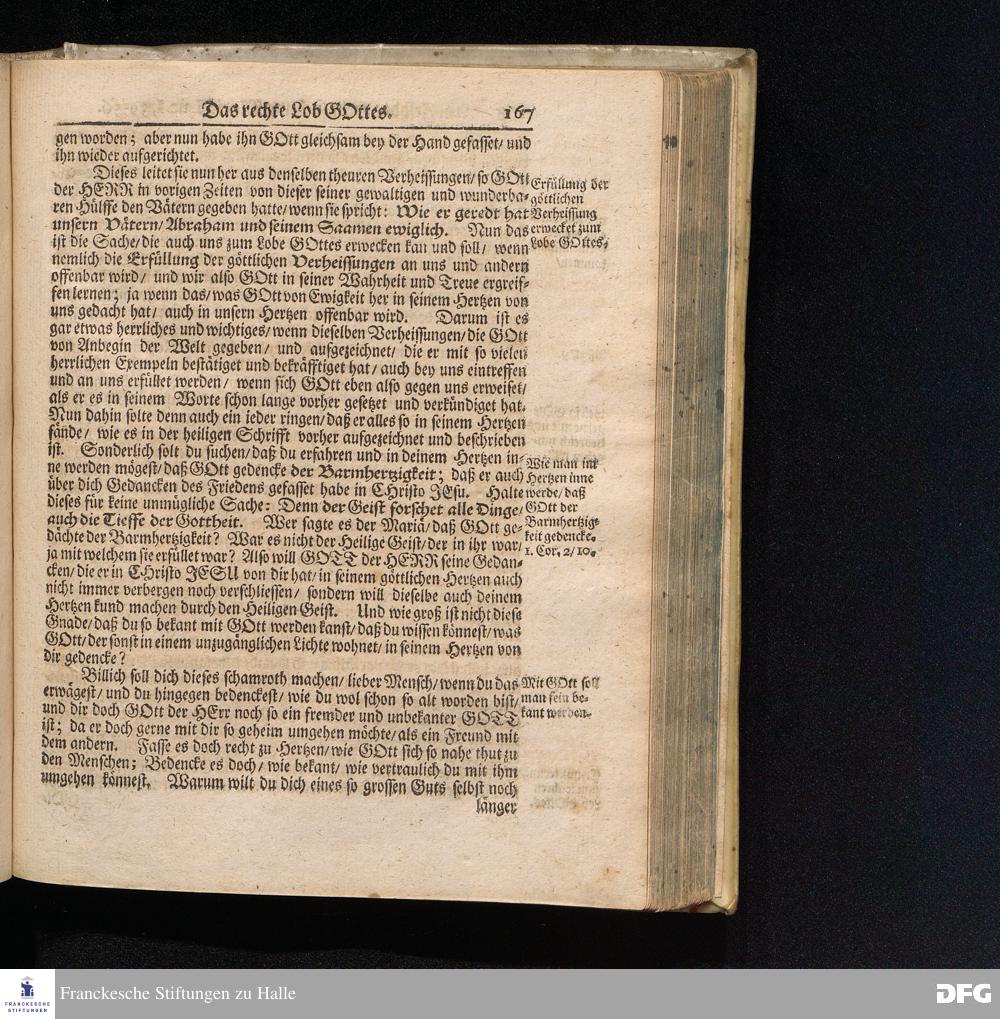 Das rechte Lob GOttes. 167
gen worden; aber nun habe ihn GOtt gleichsam bey der Hand gefasset/ und
ihn wieder aufgerichtet.
Dieses leitet sie nun her aus denselben theuren Verheissungen/ so GOtt
der HERR in vorigen Zeiten von dieser seiner gewaltigen und wunderba-
ren Hülffe den Vätern gegeben hatte/ wenn sie spricht: Wie er geredt hat
unsern Vätern/ Abraham und seinem Saamen ewiglich. Nun das
ist die Sache/ die auch uns zum Lobe GOttes erwecken kan und soll/ wenn
nemlich die Erfüllung der göttlichen Verheissungen an uns und andern
offenbar wird/ und wir also GOtt in seiner Wahrheit und Treue ergreif-
fen lernen; ja wenn das/ was GOtt von Ewigkeit her in seinem Hertzen von
uns gedacht hat/ auch in unsern Hertzen offenbar wird. Darum ist es
gar etwas herrliches und wichtiges/ wenn dieselben Verheissungen/ die GOtt
von Anbegin der Welt gegeben/ und aufgezeichnet/ die er mit so vielen
herrlichen Exempeln bestätiget und bekräfftiget hat/ auch bey uns eintreffen
und an uns erfüllet werden/ wenn sich GOtt eben also gegen uns erweiset/
als er es in seinem Worte schon lange vorher gesetzet und verkündiget hat.
Nun dahin solte denn auch ein ieder ringen/ daß er alles so in seinem Hertzen
fände/ wie es in der heiligen Schrifft vorher aufgezeichnet und beschrieben
ist. Sonderlich solt du suchen/ daß du erfahren und in deinem Hertzen in-
ne werden mögest/ daß GOtt gedencke der Barmhertzigkeit; daß er auch
über dich Gedancken des Friedens gefasset habe in CHristo JEsu. Halte
dieses für keine unmügliche Sache: Denn der Geist forschet alle Dinge/
auch die Tieffe der Gottheit. Wer sagte es der Mariä/ daß GOtt ge-
dächte der Barmhertzigkeit? War es nicht der Heilige Geist/ der in ihr war/
ja mit welchem sie erfüllet war? Also will GOTT der HERR seine Gedan-
cken/ die er in CHristo JESU von dir hat/ in seinem göttlichen Hertzen auch
nicht immer verbergen noch verschliessen/ sondern will dieselbe auch deinem
Hertzen kund machen durch den Heiligen Geist. Und wie groß ist nicht diese
Gnade/ daß du so bekant mit GOtt werden kanst/ daß du wissen könnest/ was
GOtt/ der sonst in einem unzugänglichen Lichte wohnet/ in seinem Hertzen von
dir gedencke?
Billich soll dich dieses schamroth machen/ lieber Mensch/ wenn du das
erwägest/ und du hingegen bedenckest/ wie du wol schon so alt worden bist/
und dir doch GOtt der HErr noch so ein fremder und unbekanter GOTT
ist; da er doch gerne mit dir so geheim umgehen möchte/ als ein Freund mit
dem andern. Fasse es doch recht zu Hertzen/ wie GOtt sich so nahe thut zu
den Menschen; Bedencke es doch/ wie bekant/ wie vertraulich du mit ihm
umgehen könnest. Warum wilt du dich eines so grossen Guts selbst noch
länger
Erfüllung der
göttlichen
Verheissung
erwecket zum
Lobe GOttes.
Wie man im
Hertzen inne
werde/ daß
GOtt der
Barmhertzig-
keit gedencke.
1. Cor. 2/10.
Mit GOtt soll
man fein be-
kant werden.
FRANCKESCHE
STIFTUNGEN
Franckesche Stiftungen zu Halle
DFG